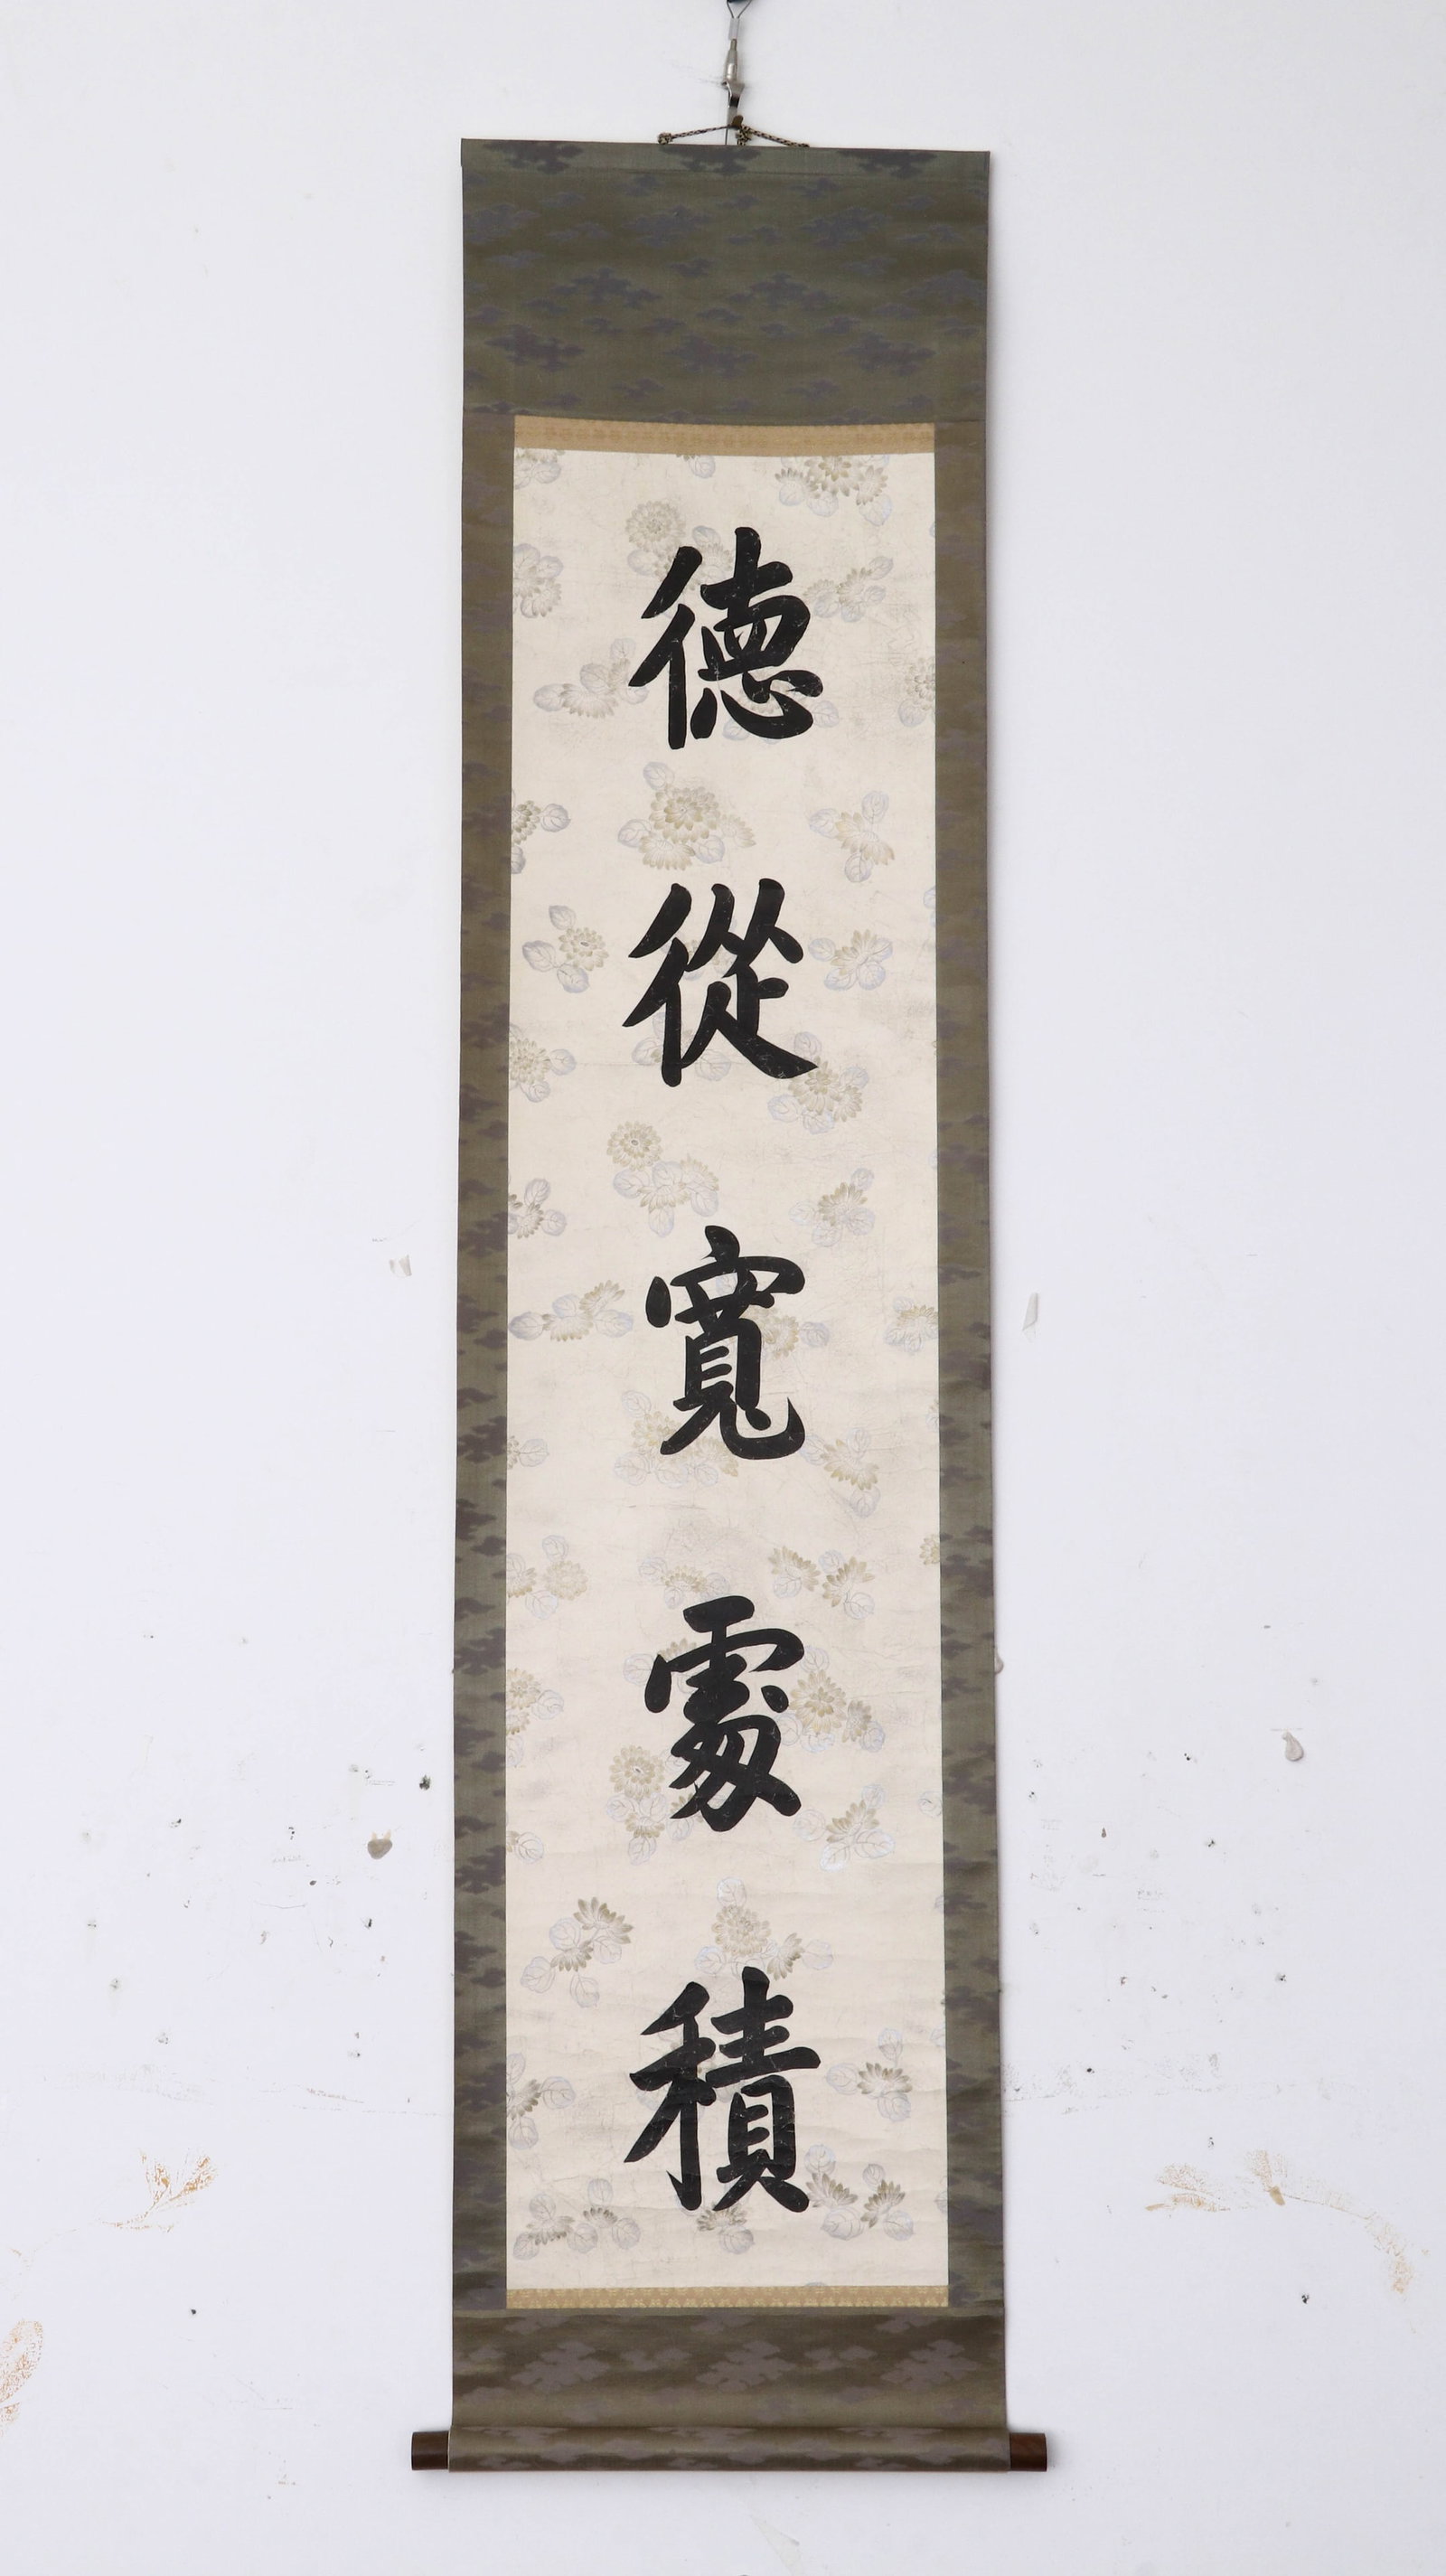 德從寬處積